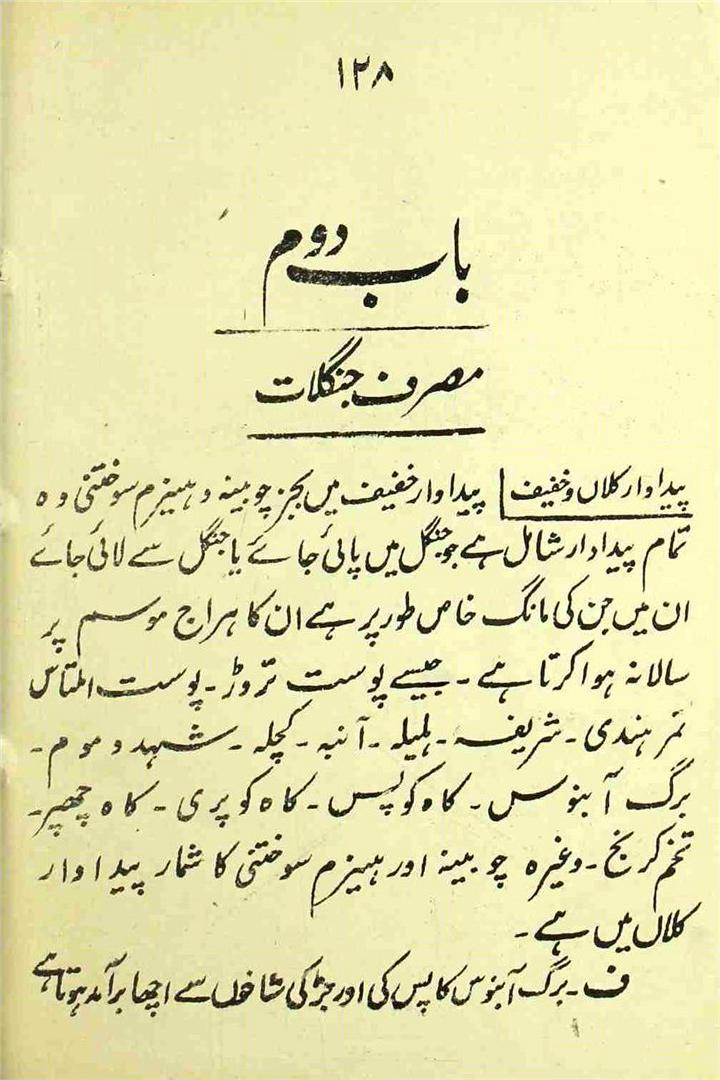 ۱۲۸
باب دوم
مصرف جنگلات
پیداوار کلاں و خفیف پیداوار خفیف میں بجز چوبینہ و ہیزم سوختنی وہ
تمام پیداوار شامل ہے جو جنگل میں پائی جائے یا جنگل سے لائی جائے
ان میں جن کی مانگ خاص طور پر ہے ان کا ہراج موسم پر
سالانہ ہوا کرتا ہے۔ جیسے پوست تروڑ۔ پوست املتاس
تمر ہندی۔ شریفہ۔ ہلیلہ۔ آنبہ۔ کچلہ۔ شہد و موم۔
برگ آبنوس۔ کاہ کوپس۔ کاہ کوپری۔ کاہ چھپر۔
تخم کرنج۔ وغیرہ چوبینہ اور ہیزم سوختنی کا شمار پیداوار
کلاں میں ہے۔
ف۔ برگ آبنوس کاپس کی اور جڑ کی شاخوں سے اچھا برآمد ہوتا ہے